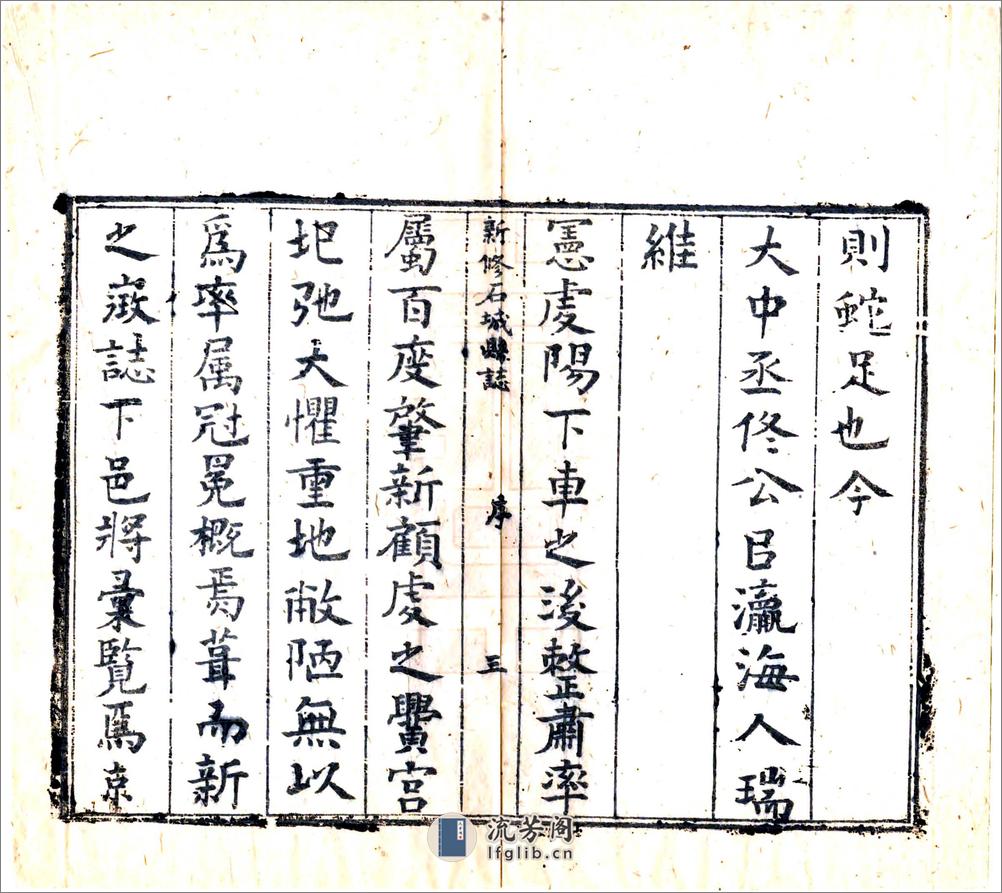 則蛇足也今
大中丞佟公㠯瀛海人瑞
維
憲虔陽下車之後整肅率
屬百度肇新顧虔之黌宮
圯弛大懼重地敝陋無以
爲率属冠冕概焉葺而新
之嶶誌下邑將彙覽焉
新修石城縣誌
序
三
流芳阁
lfglib.cn